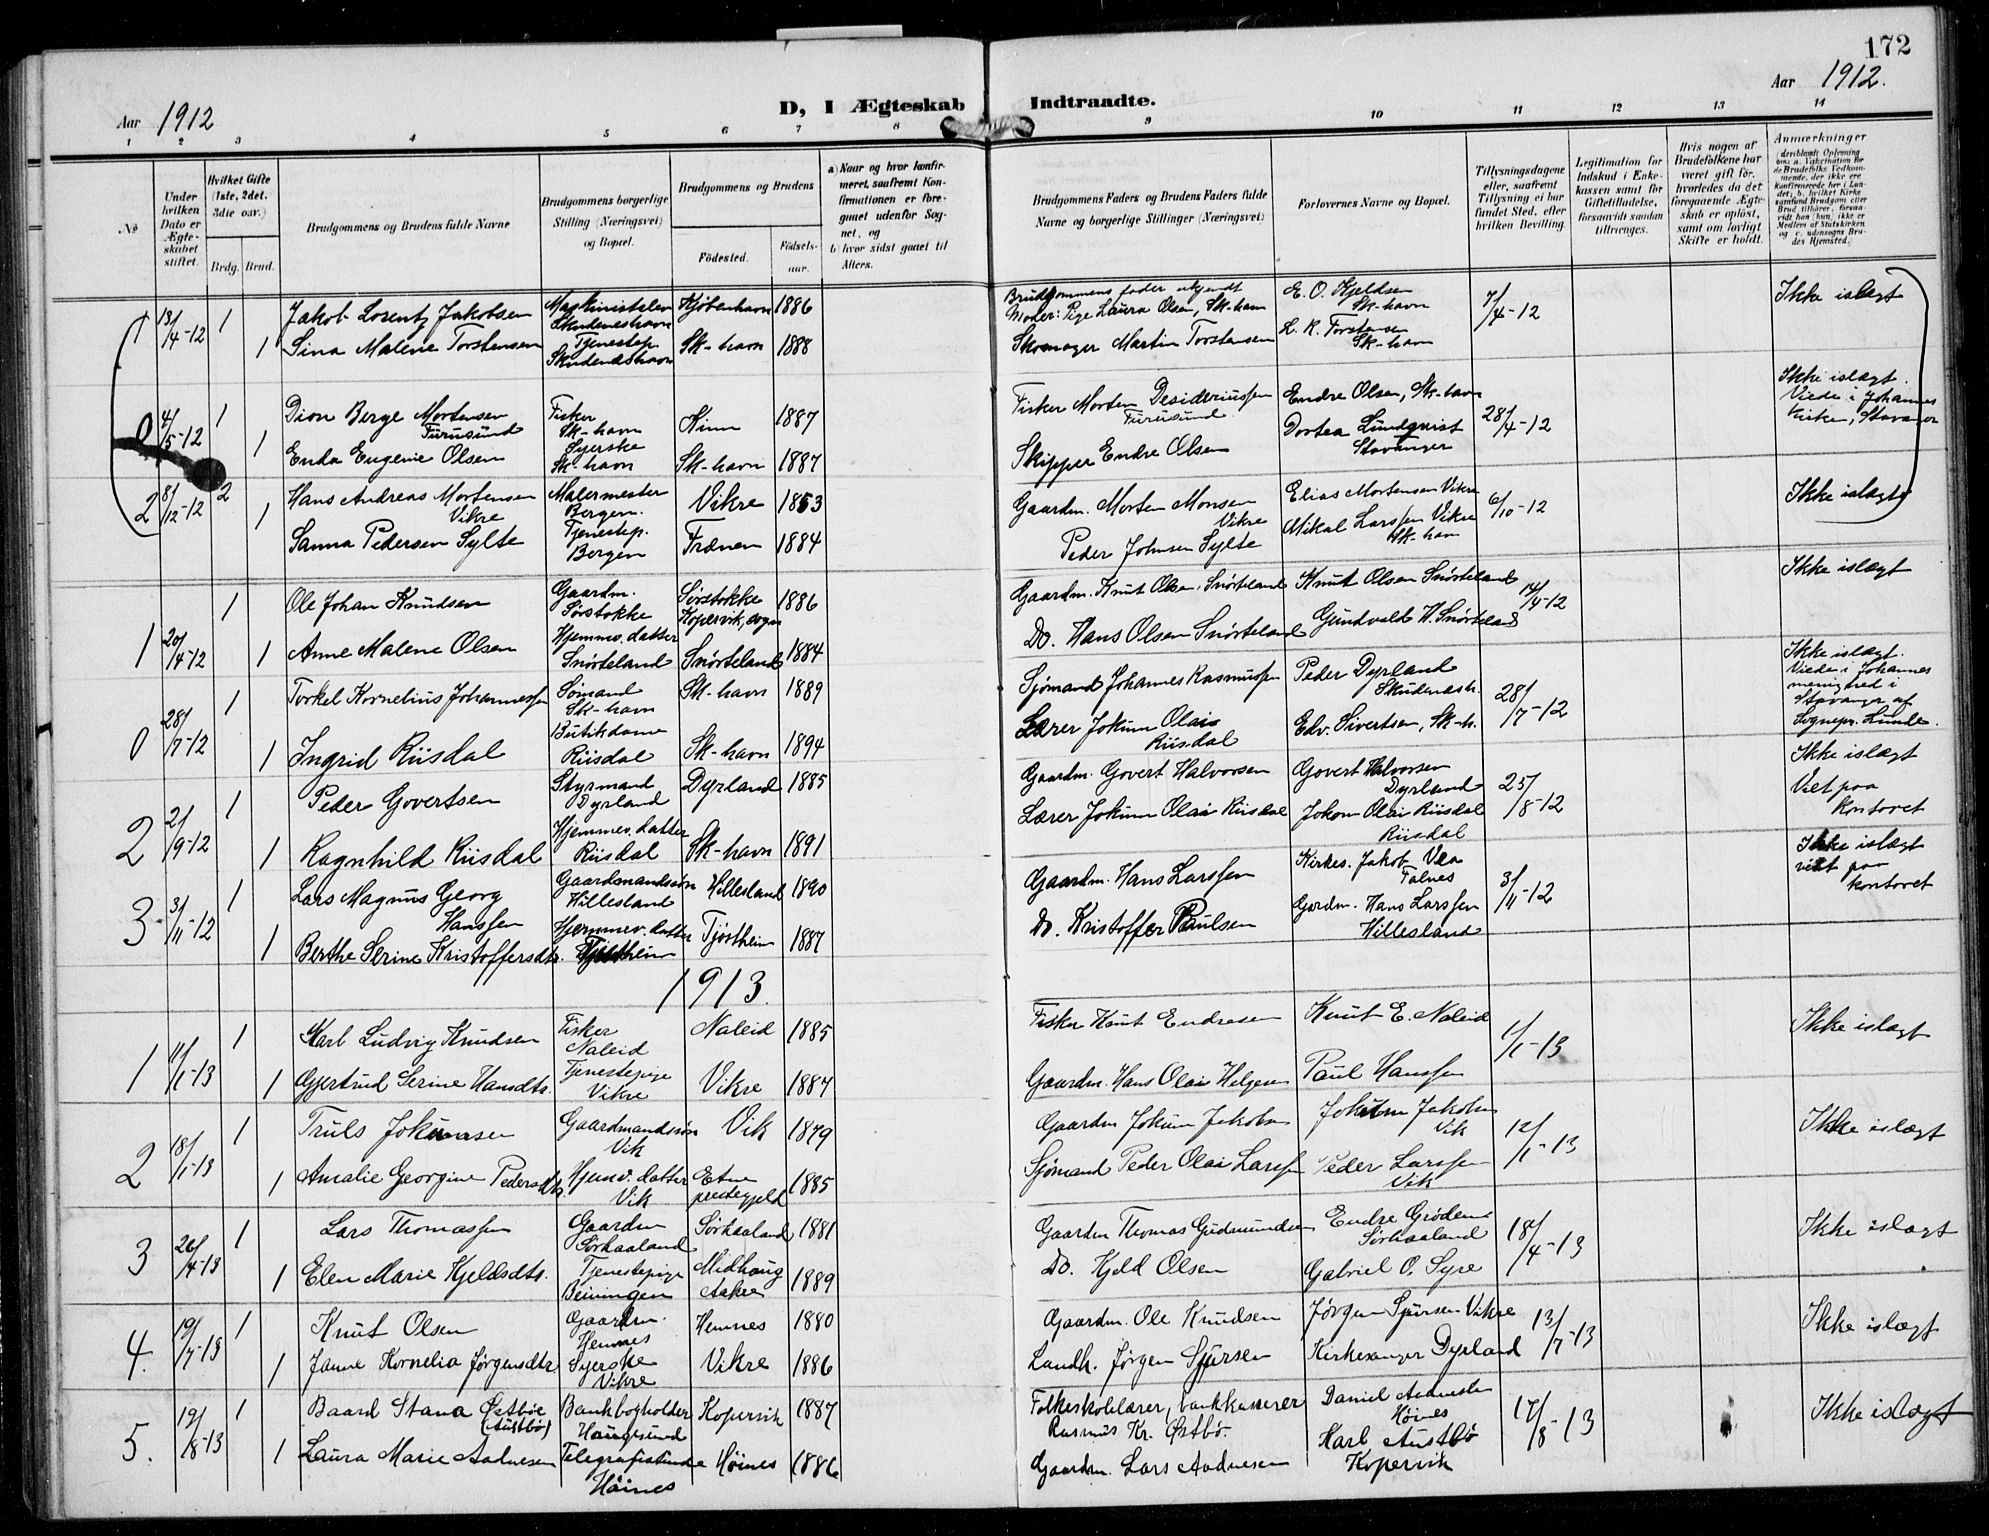 172
Aar 1912
D, I Ægteskab Indtraadte.
Aar 1912.
1 2 3 4 5 6 7 8 9 10 11 12 13 14
No
Under hvilken Dato er Ægteskabet stiftet.
Hvilket Gifte (1ste, 2det, 3die osv.)
Brdg. Brud.
Brudgommens og Brudens fulde Navne
Brudgommens borgerlige Stilling (Næringsvei) og Bopæl.
Brudgommens og Brudens
Födested.
Födselsaar.
a) Naar og hvor konfirmeret, saafremt Konfirmationen er foregaaet udenfor Sognet, og
b) hvor sidst gaaet til Alters.
Brudgommens Faders og Brudens Faders fulde Navne og borgerlige Stillinger (Næringsvei)
Forlovernes Navne og Bopæl.
Tillysningsdagene eller, saafremt Tillysning ei har fundet Sted, efter hvilken Bevilling.
Legitimation for Indskud i Enkekassen samt for Giftetilladelse, forsaavidt saadan tiltrænges.
Hvis nogen af Brudefolkene har været gift för, hvorledes da det foregaaende Ægteskab er oplöst, samt om lovligt Skifte er holdt.
Anmærkninger
(deriblandt Oplysning om: a. Vakcination for de Brudefolks Vedkommende, der ikke ere konfirmerede her i Landet; b. hvilket Kirkesamfund Brudgom eller Brud tilhörer, forsaavidt han (hun) ikke er Medlem af Statskirken og c. udensogns Brudes Hjemsted.)
1 13/4-12 1 Jakob Lorentz Jakobsen Maskinistelev Skudeneshavn Kjøbenhavn 1886 Brudgommens fader ukjendt Moder: Pige Laura Olsen, Sk-havn E. O. Kjeldsen Sk-havn 7/4-12 Ikke islægt
1 Sina Malene Torstensen Tjenestep. Skudeneshavn Sk-havn 1888 Skomager Martin Torstensen L. K. Torstensen Sk-havn
0 4/5-12 1 Dion Berge Mortensen Furusund Fisker Sk-havn 1887 Fisker Morten Desideriussen Furusund Endre Olsen, Sk-havn 28/4-12 Ikke islægt. Viede i Johannes Kirke, Stavanger
1 Enda Eugenie Olsen Syerske Sk-havn Sk-havn 1887 Skipper Endre Olsen Dortea Lundqvist Stavanger
2 8/12-12 2 Hans Andreas Mortensen Vikre Malermester Bergen. Vikre 1853 Gaardm. Morten Monsen Vikre Elias Mortensen Vikre 6/10-12 Ikke islægt
1 Sanna Pedersen Sylte Tjenestep. Bergen Frænen 1884 Peder Johnsen Sylte Mikal Larssen Vikre Sk-havn
1 20/4-12 1 Ole Johan Knudsen Gaardm. Sørstokke Sørstokke Kopervik sogn 1886 Gaardm. Knut Olsen Snørteland Knut Olsen Snørteland 14/4-12 Ikke islægt
1 Anne Malene Olsen Hjemmev. datter Snørteland Snørteland 1884 Do. Hans Olsen Snørteland Gundvald H. Snørteland
0 28/7-12 1 Torkel Kornelius Johannessen Sømand Sk-havn Sk-havn 1889 Sjømand Johannes Rasmussen Peder Dyrland Skudenesh. 28/7-12 Ikke islægt. Viede i Johannes menighed i Stavanger af Sognepr. Lunde.
1 Ingrid Riisdal Butikdame Riisdal Sk-havn 1894 Lærer Jokum Olai Riisdal Edv. Sivertsen, Sk-h.
2 21/9-12 1 Peder Govertsen Styrmand Dyrland Dyrland 1885 Gaardm. Govert Halvorsen Govert Halvorsen Dyrland 25/8-12 Ikke islægt Viet paa kontoret
1 Ragnhild Riisdal Hjemmev. datter Riisdal Sk-havn 1891 Lærer Jokum Olai Riisdal Jokum Olai Riisdal Riisdal
3 3/11-12 1 Lars Magnus Georg Hanssen Gaardmandssøn Hillesland Hillesland 1890 Gaardm. Hans Larssen Kirkes. Jakob Vea Falnes 3/11-12 Ikke islægt viet paa kontoret
1 Berthe Serine Kristoffersdtr. Hjemmev. datter Tjøstheim Tjøstheim 1887 Do. Kristoffer Paulsen Gardm. Hans Larssen Hillesland
1913.
1 11/1-13 1 Karl Ludvig Knudsen Fisker Naleid Naleid 1885 Fisker Knut Endresen Knut E. Naleid 1/1-13 Ikke islægt
1 Gjertrud Serine Hansdtr. Tjenestepige Vikre Vikre 1887 Gaardm. Hans Olai Helgesen Paul Hanssen
2 18/1-13 1 Truls Jokumsen Gaardmandssøn Vik Vik 1879 Gaardm Jokum Jakobsen Jokum Jakobsen Vik 12/1-13 Ikke islægt
1 Amalie Georgine Pedersdtr. Hjemv. datter Vik Etne prestegjeld 1885 Sjømand Peder Olai Larssen Peder Larssen Vik
3 26/4-13 1 Lars Thomassen Gaardm Sørhaaland Sørhaaland 1881 Gaardm Thomas Gudmundsen Endre Grødem Sørhaaland 18/4-13 Ikke islægt
1 Elen Marie Kjeldsdtr. Tjenestepige Beiningen Midhaug Aakre 1889 Do. Kjeld Olsen Gabriel O. Syre
4. 19/7-13 1 Knut Olsen Gaardm. Hemnes Hemnes 1880 Gaardm. Ole Knudsen Jørgen Sjursen Vikre 13/7-13 Ikke islægt
1 Janne Kornelia Jørgensdtr. Syerske Vikre Vikre 1886 Landh. Jørgen Sjursen Kirkesanger Dyrland
5. 19/8-13 1 Baard Stana Østbøe (Austbø) Bankbogholder Haugesund Kopervik 1887 Folkeskolelærer, bankkasserer Rasmus Kr. Østbø. Daniel Aadnesen Høines 17/8-13 Ikke islægt
1 Laura Marie Aadnesen Telegrafistinde Høines Høines 1886 Gaardm. Lars Aadnesen Karl Austbø Kopervik